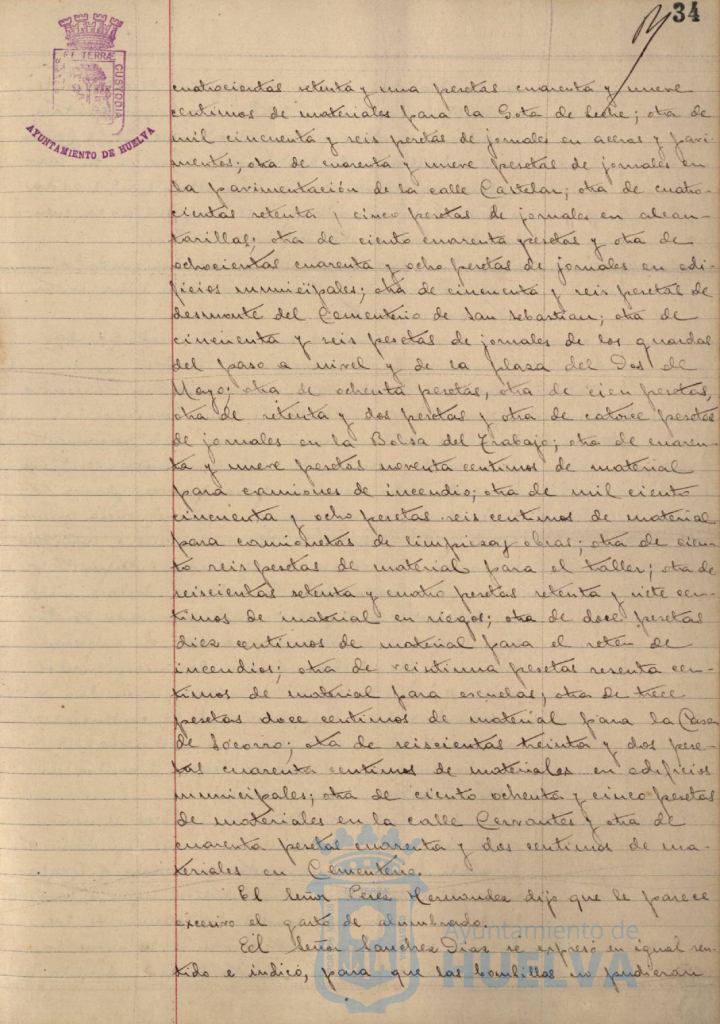 34
ET TERRAE
CUSTODIA
AYUNTAMIENTO DE HUELVA
cuatrocientas setenta y una pesetas cuarenta y nueve
centimos de materiales para la Gota de leche; otra de
mil cincuenta y seis pesetas de jornales en aceras y pavi-
mentos; otra de cuarenta y nueve pesetas de jornales en
la pavimentación de la calle Castelar; otra de cuatro-
cientas setenta y cinco pesetas de jornales en alcan-
tarillas; otra de ciento cuarenta pesetas y otra de
ochocientas cuarenta y ocho pesetas de jornales en edi-
ficios municipales; otra de cincuenta y seis pesetas de
desmonte del Cementerio de San Sebastian; otra de
cincuenta y seis pesetas de jornales de los guardas
del paso a nivel y de la plaza del Dos de
Mayo; otra de ochenta pesetas, otra de cien pesetas,
otra de setenta y dos pesetas y otra de catorce pesetas
de jornales en la Bolsa del Trabajo; otra de cuaren-
ta y nueve pesetas noventa centimos de material
para camiones de incendio; otra de mil ciento
cincuenta y ocho pesetas seis centimos de material
para camionetas de limpieza y obras; otra de cien-
to seis pesetas de material para el taller; otra de
seiscientas setenta y cuatro pesetas setenta y siete cen-
timos de material en riegos; otra de doce pesetas
diez centimos de material para el reten de
incendios; otra de veintiuna pesetas sesenta cen-
timos de material para escuelas; otra de trece
pesetas doce centimos de material para la Casa
de Socorro; otra de seiscientas treinta y dos pese-
tas cuarenta centimos de materiales en edificios
municipales; otra de ciento ochenta y cinco pesetas
de materiales en la calle Cervantes y otra de
cuarenta pesetas cuarenta y dos centimos de ma-
teriales en Cementerio.
El Señor Perez Hernandez dijo que le parece
excesivo el gasto de alumbrado.
El Señor Sanchez Diaz se expresó en igual sen-
tido e indicó, para que las bombillas no pudieran
Ayuntamiento de
HUELVA